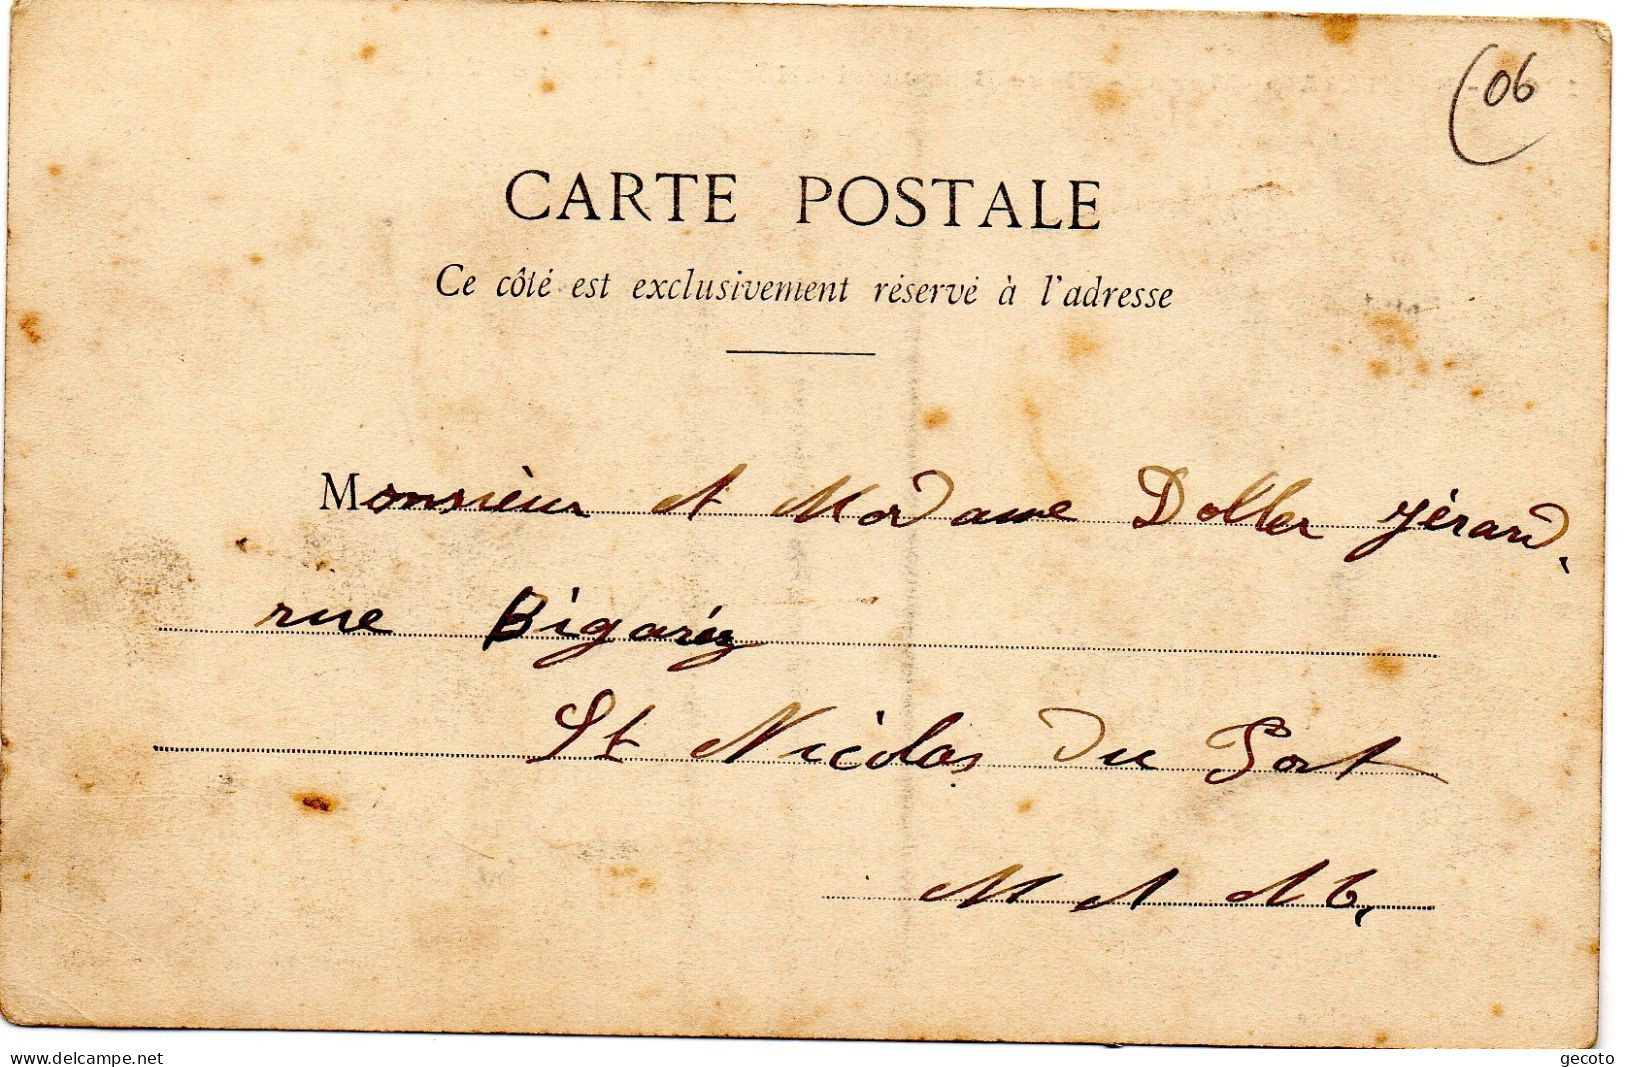 (06
CARTE POSTALE
Ce côté est exclusivement réservé à l'adresse
Monsieur et Madame Doller Gérard,
rue
St Nicolas du Port
M et M,
www.delcampe.net
gecoto